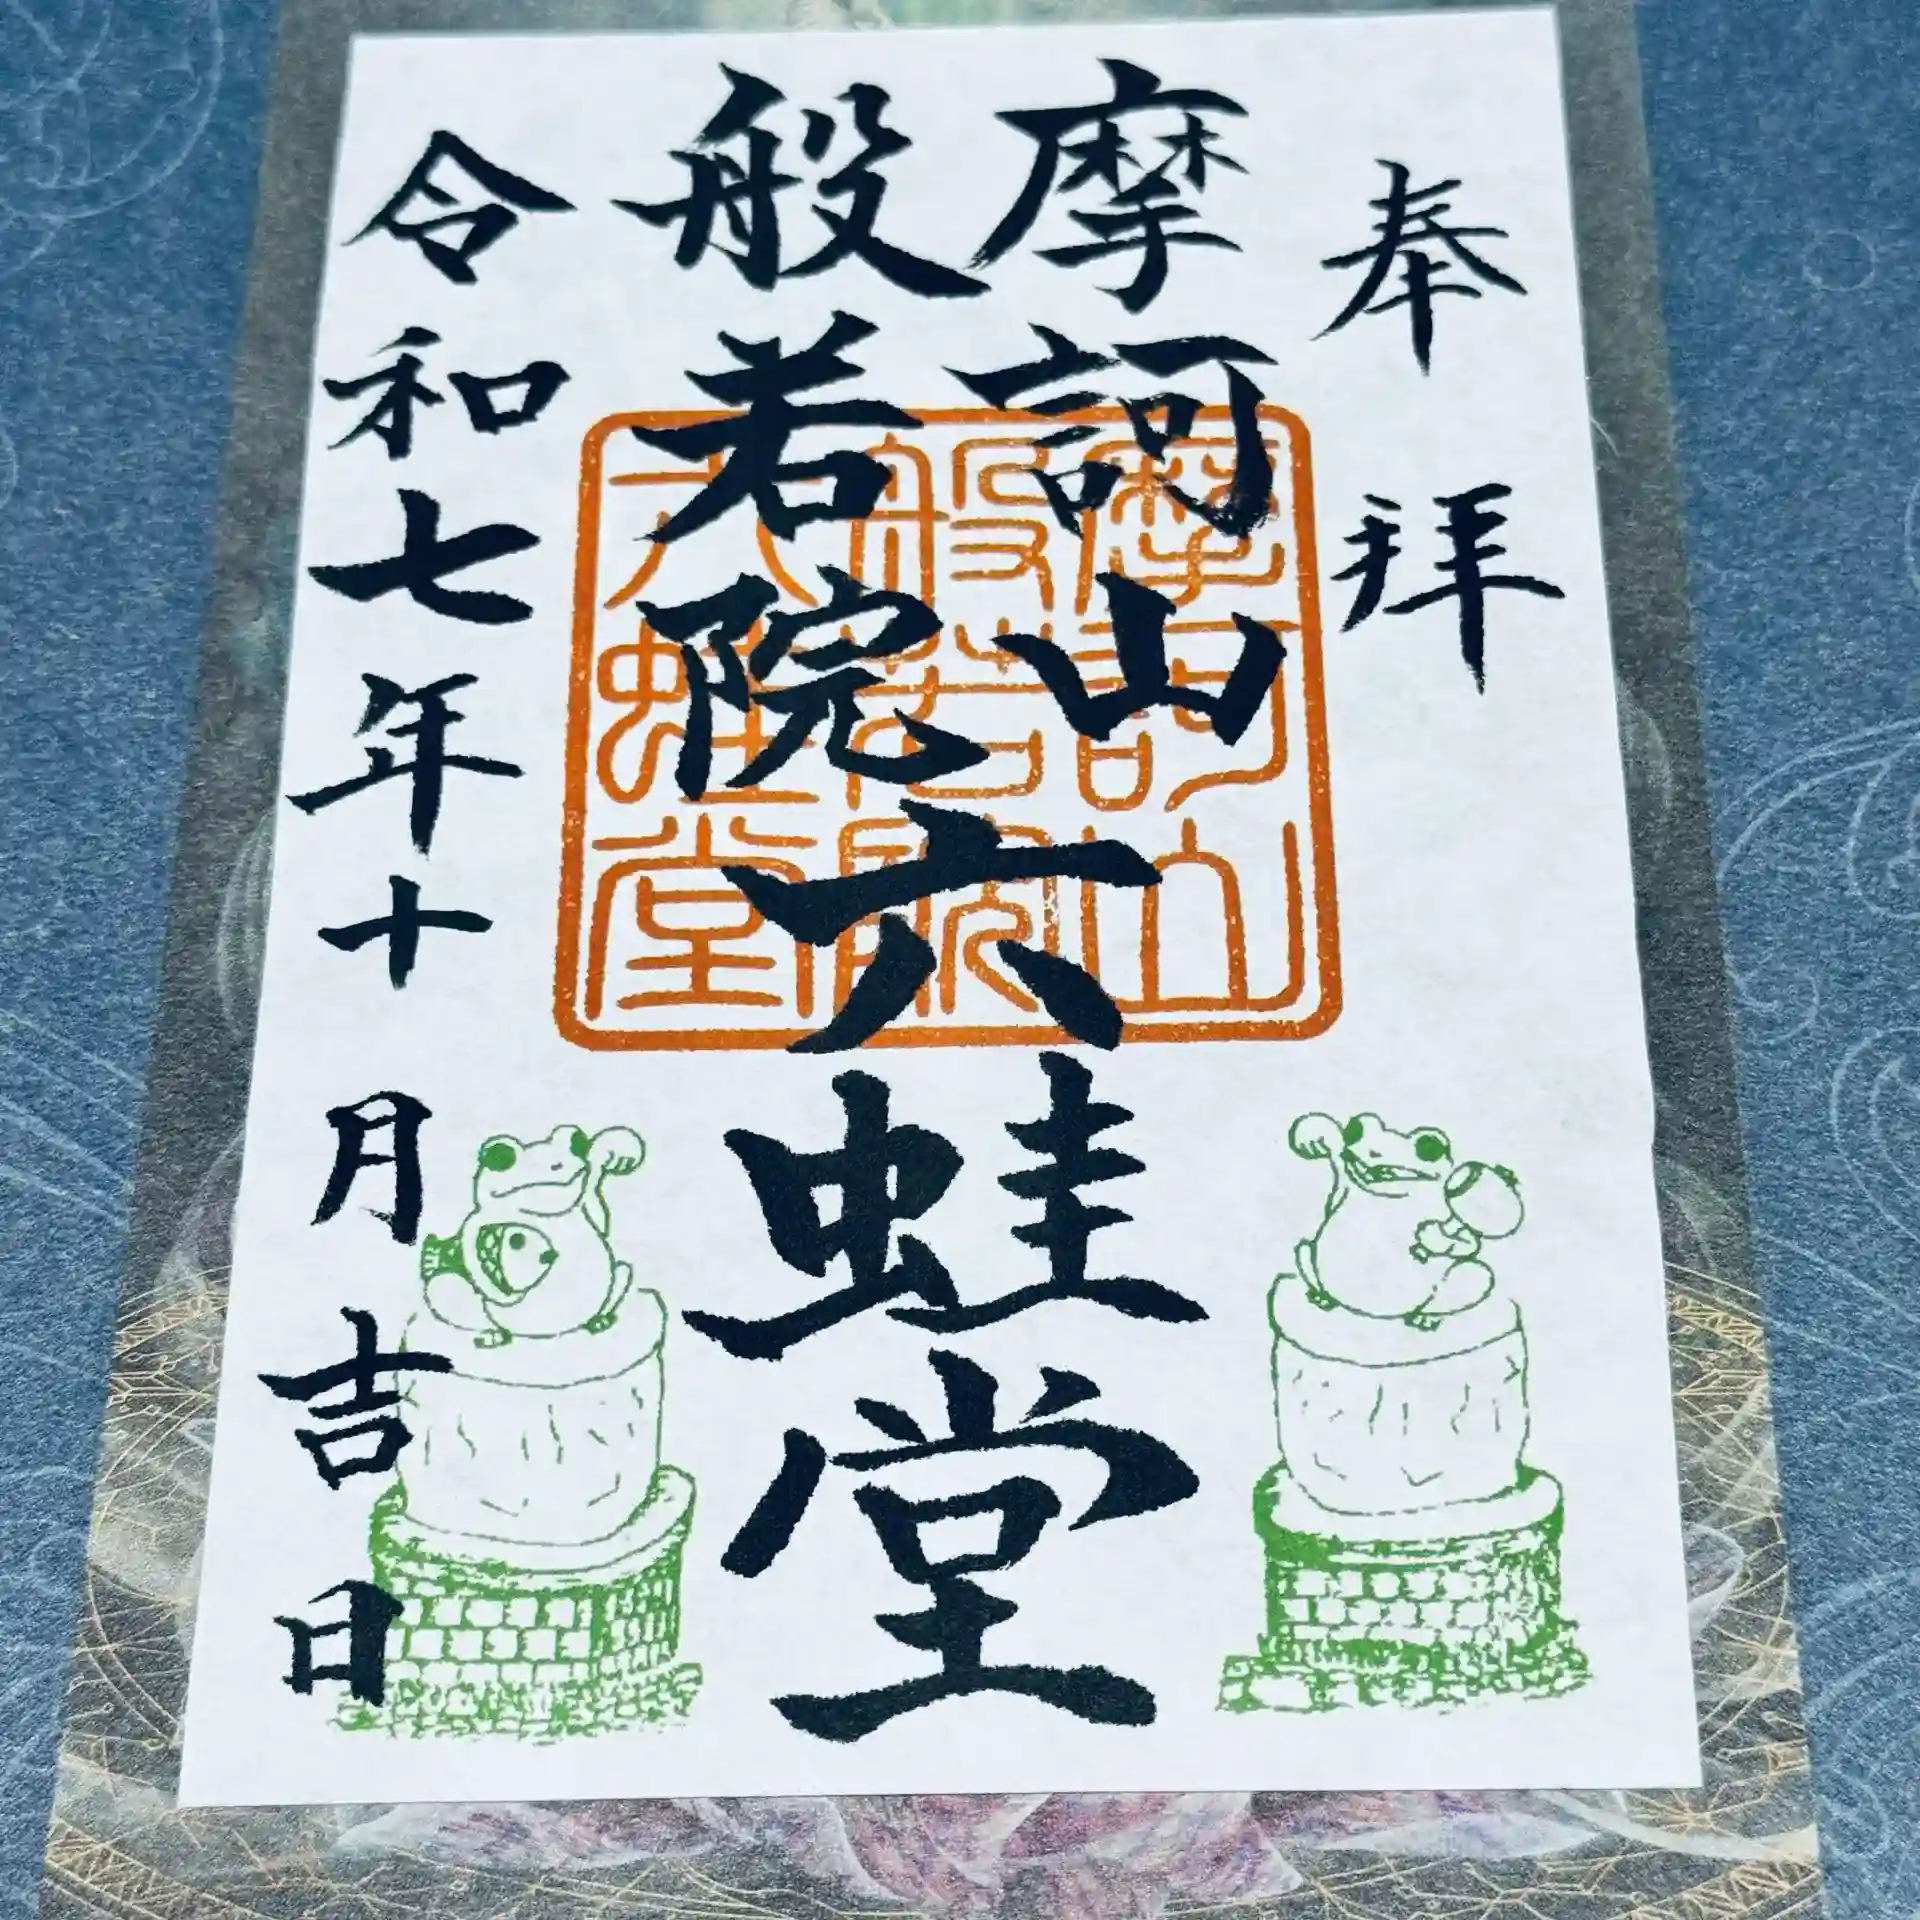 奉拝
摩訶山
般若院
六蛙堂
令和七年十月吉日
摩訶山
般若院
六蛙堂